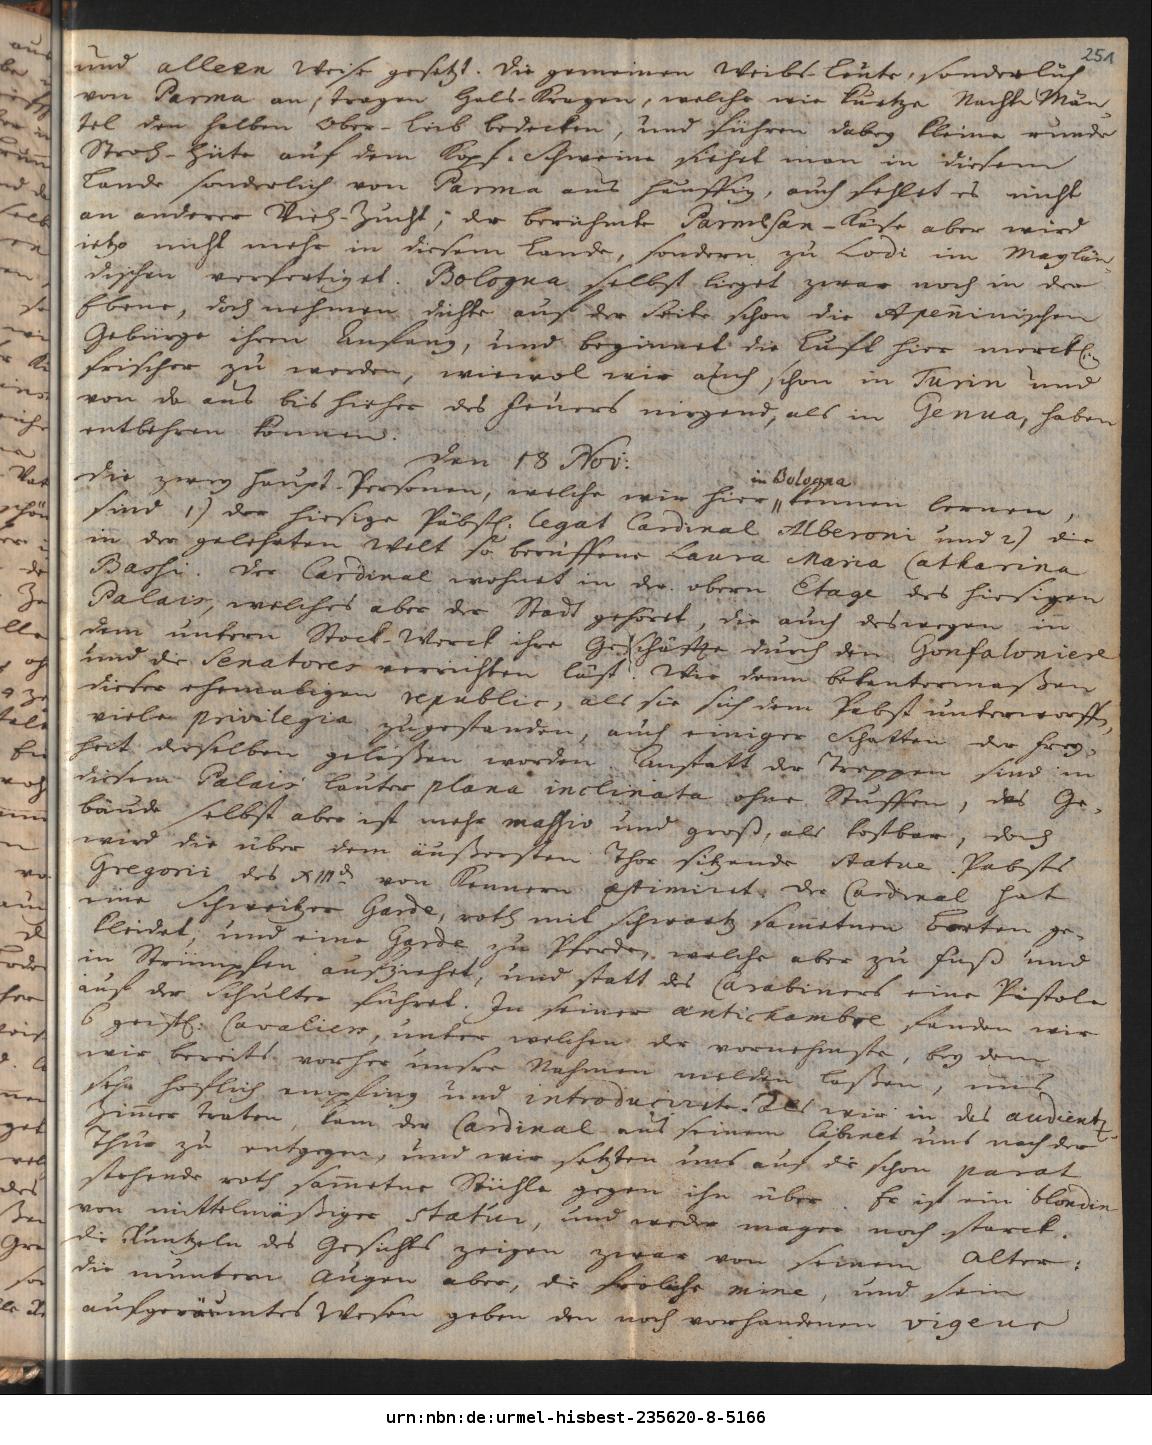 251
und alleen Weise gesetzt. Die gemeinen Weibs-Leute, sonderlich
von Parma an, tragen Hals-Kragen, welche wie kurtze Nacht Män
tel den halben Ober-Leib bedecken, und führen dabey kleine runde
Stroh-Hüte auf dem Kopf. Schweine siehet man in diesem
Lande sonderlich von Parma aus häuffig, auch fehlet es nicht
an anderer Vieh-Zucht; der berühmte Parmesan-Käse aber wird
ietzo nicht mehr in diesem Lande, sondern zu Lodi im Maylän-
dischen verfertiget. Bologna selbst lieget zwar noch in der
Ebene, doch nehmen dichte auf der Seite schon die Apenninischen
Gebürge ihren Anfang, und beginnet die Luft hier merckl.
frischer zu werden, wiewol wir auch schon in Turin und
von da aus bis hieher des Feuers nirgend, als in Genua, haben
entbehren können.
den 18 Nov:
Die zwey Haupt-Personen, welche wir hier in Bologna kennen lernen,
sind 1) der hiesige Päbstl. Legat Cardinal Alberoni und 2) die
in der gelehrten Welt so beruffene Laura Maria Catharina
Bassi. Der Cardinal wohnet in der obern Etage des hiesigen
Palais, welches aber der Stadt gehöret, die auch deswegen in
dem untern Stock-Werck ihre Geschäffte durch den Gonfaloniere
und die Senatores verrichten läst. Wie denn bekantermaßen
dieser ehemaligen republic, als sie sich dem Pabst unterworffen,
viele privilegia zugestanden, auch einiger Schatten der Frey-
heit derselben gelaßen worden. Anstatt der Treppen sind in
diesem Palais lauter plana inclinata ohne Stuffen, das Ge-
bäude selbst aber ist mehr massiv und groß, als kostbar, doch
wird die über dem äußersten Thor sitzende statue Pabsts
Gregorii des XIIIde von Kennern æstimiret. Der Cardinal hat
eine Schweitzer Garde, roth mit schwartz sametnen Borten ge-
kleidet, und eine Garde zu Pferde, welche aber zu Fuß und
in Strümpfen aufziehet, und statt des Carabiners eine Pistole
auf der Schulter führet. In seiner antichambre fanden wir
6 geistl. Cavaliers, unter welchen der vornehmste, bey dem
wir bereits vorher unsre Nahmen melden laßen, uns
sehr höflich empfing und introducirte. Als wir in das audientz-
Zimmer traten, kam der Cardinal aus seinem Cabinet uns nach der
Thür zu entgegen, und wir setzten uns auf die schon parat
stehende roth sametne Stühle gegen ihn über. Er ist ein blondin
von mittelmäßiger statur, und weder mager noch starck.
die Runtzeln des Gesichts zeigen zwar von seinem Alter:
die muntern Augen aber, die froliche mine, und sein
aufgeräumtes Wesen geben den noch vorhandenen vigeur
urn:nbn:de:urmel-hisbest-235620-8-5166